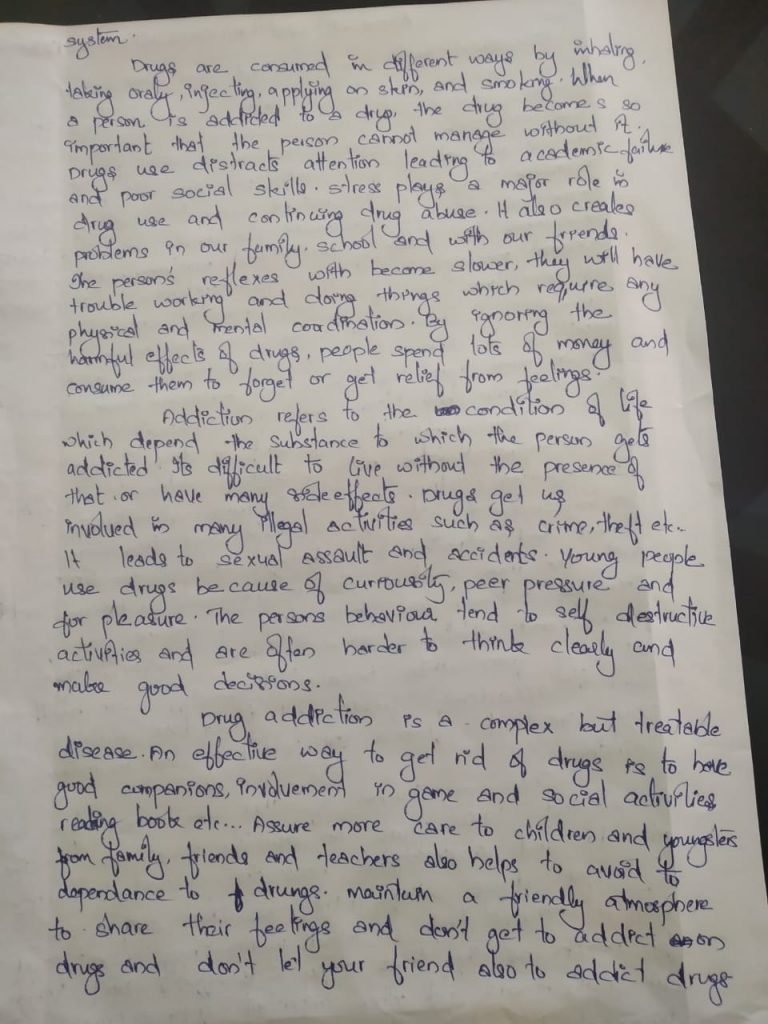 system.
Drugs are consumed in different ways by inhaling,
taking oraly, injecting, applying on skin, and smoking. When
a person is addicted to a drug, the drug becomes so
important that the person cannot manage without it.
Drugs use distracts attention leading to academic failure
and poor social skills. stress plays a major role in
drug use and continuing drug abuse. It also creates
problems in our family, school and with our friends.
The person's reflexes with become slower, they will have
trouble working and doing things which require any
physical and mental coordination. By ignoring the
harmful effects of drugs, people spend lots of money and
consume them to forget or get relief from feelings.
Addiction refers to the condition of life
which depend the substance to which the person gets
addicted its difficult to live without the presence of
that or have many side effects. Drugs get us
involved in many illegal activities such as crime, theft etc..
It leads to sexual assault and accidents. Young people
use drugs because of curriousity, peer pressure and
for pleasure. The persons behaviour tend to self destructive
activities and are often harder to think clearly and
make good decisions.
Drug addiction is a complex but treatable
disease. An effective way to get rid of drugs is to have
good companions, involvement in game and social activities
reading book etc... Assure more care to children and youngsters
from family, friends and teachers also helps to avoid to
dependance to drungs. maintain a friendly atmosphere
to share their feelings and don't get to addict on
drugs and don't let your friend also to addict drugs